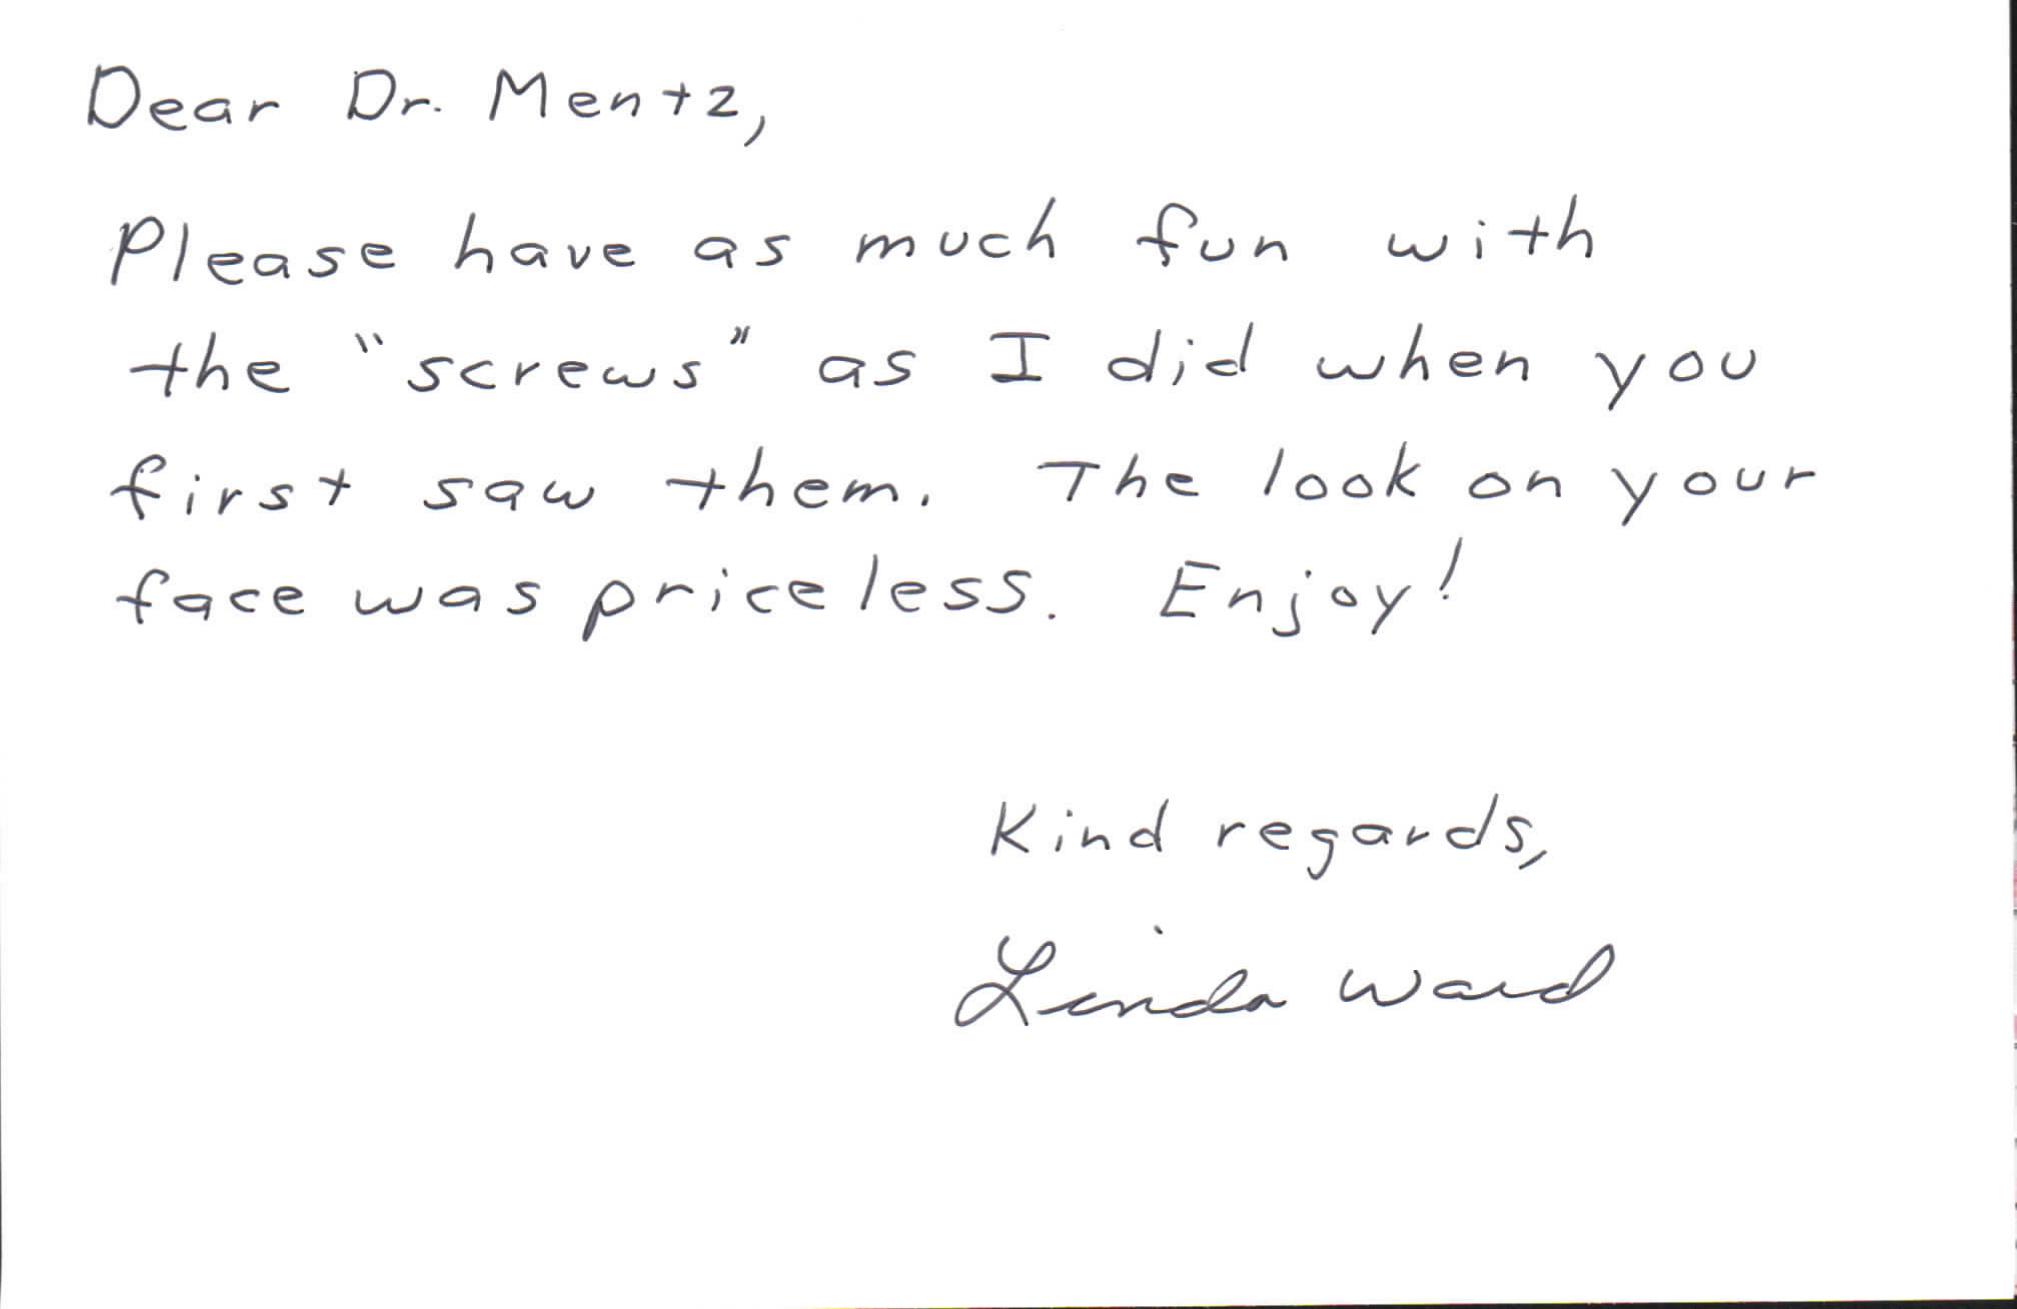 Dear Dr. Mentz,
Please have as much fun with
the "screws" as I did when you
first saw them. The look on your
face was priceless. Enjoy!
Kind regards,
Linda Ward